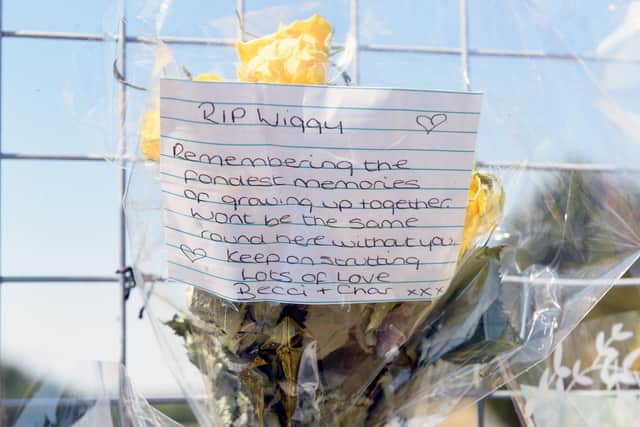 RIP Wiggy ♡
Remembering the
fondest memories
of growing up together
Wont be the same
round here without you.
♡ Keep on strutting
Lots of Love
Becci + Char xxx